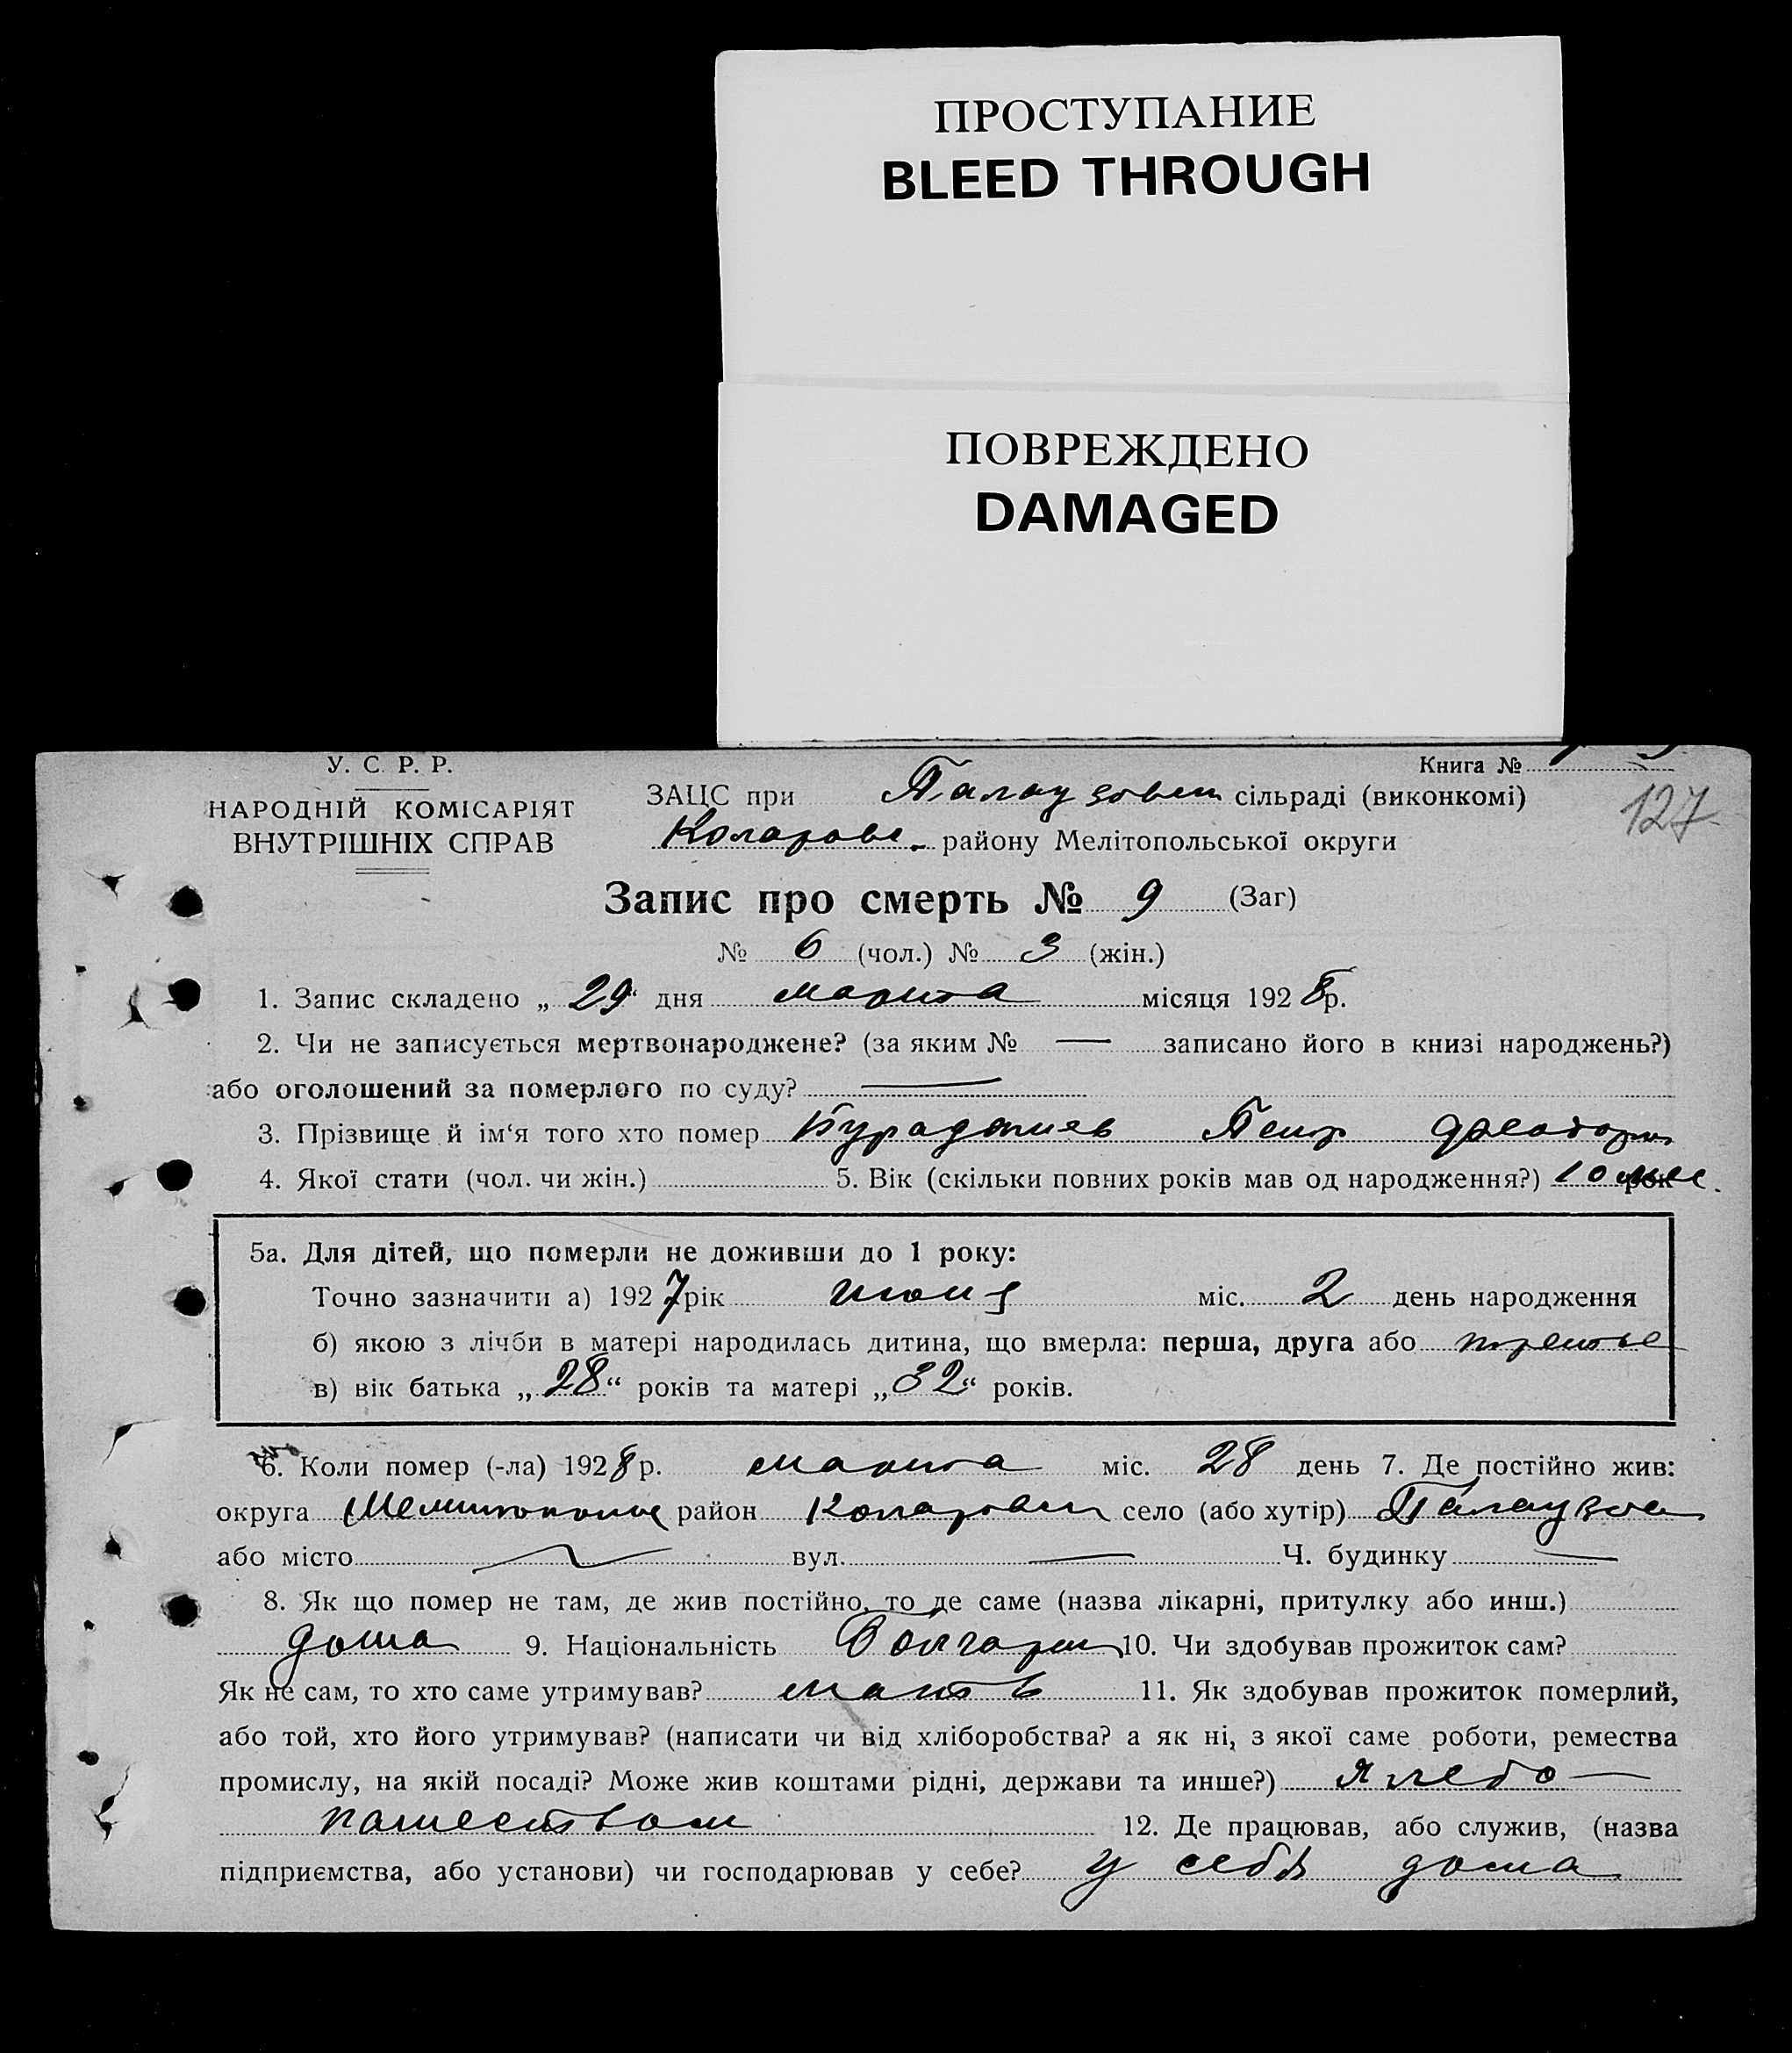 ПРОСТУПАНИЕ
BLEED THROUGH
ПОВРЕЖДЕНО
DAMAGED
У. С. Р. Р.
НАРОДНІЙ КОМІСАРІЯТ
ВНУТРІШНІХ СПРАВ
Книга №
127
ЗАЦС при Палаузовск сільраді (виконкомі)
Коларовс. району Мелітопольської округи
Запис про смерть № 9 (Заг)
№ 6 (чол.) № 3 (жін.)
1. Запис складено „ 29 “ дня марта місяця 1928 р.
2. Чи не записується мертвонароджене? (за яким № — записано його в книзі народжень?)
або оголошений за померлого по суду? —
3. Прізвище й ім‘я того хто помер Петр
4. Якої стати (чол. чи жін.) 5. Вік (скільки повних років мав од народження?) 10 мес.
5а. Для дітей, що померли не доживши до 1 року:
Точно зазначити а) 1927 рік июня міс. 2 день народження
б) якою з лічби в матері народилась дитина, що вмерла: перша, друга або
в) вік батька „ 28 “ років та матері „ 32 “ років.
6. Коли помер (-ла) 1928 р. марта міс. 28 день 7. Де постійно жив:
округа район село (або хутір)
або місто — вул. — Ч. будинку —
8. Як що помер не там, де жив постійно, то де саме (назва лікарні, притулку або инш.)
дома 9. Національність Болгарин 10. Чи здобував прожиток сам?
Як не сам, то хто саме утримував? мать 11. Як здобував прожиток померлий,
або той, хто його утримував? (написати чи від хліборобства? а як ні, з якої саме роботи, ремества
промислу, на якій посаді? Може жив коштами рідні, держави та инше?) хлебо—
пашеством 12. Де працював, або служив, (назва
підприємства, або установи) чи господарював у себе? у себя дома